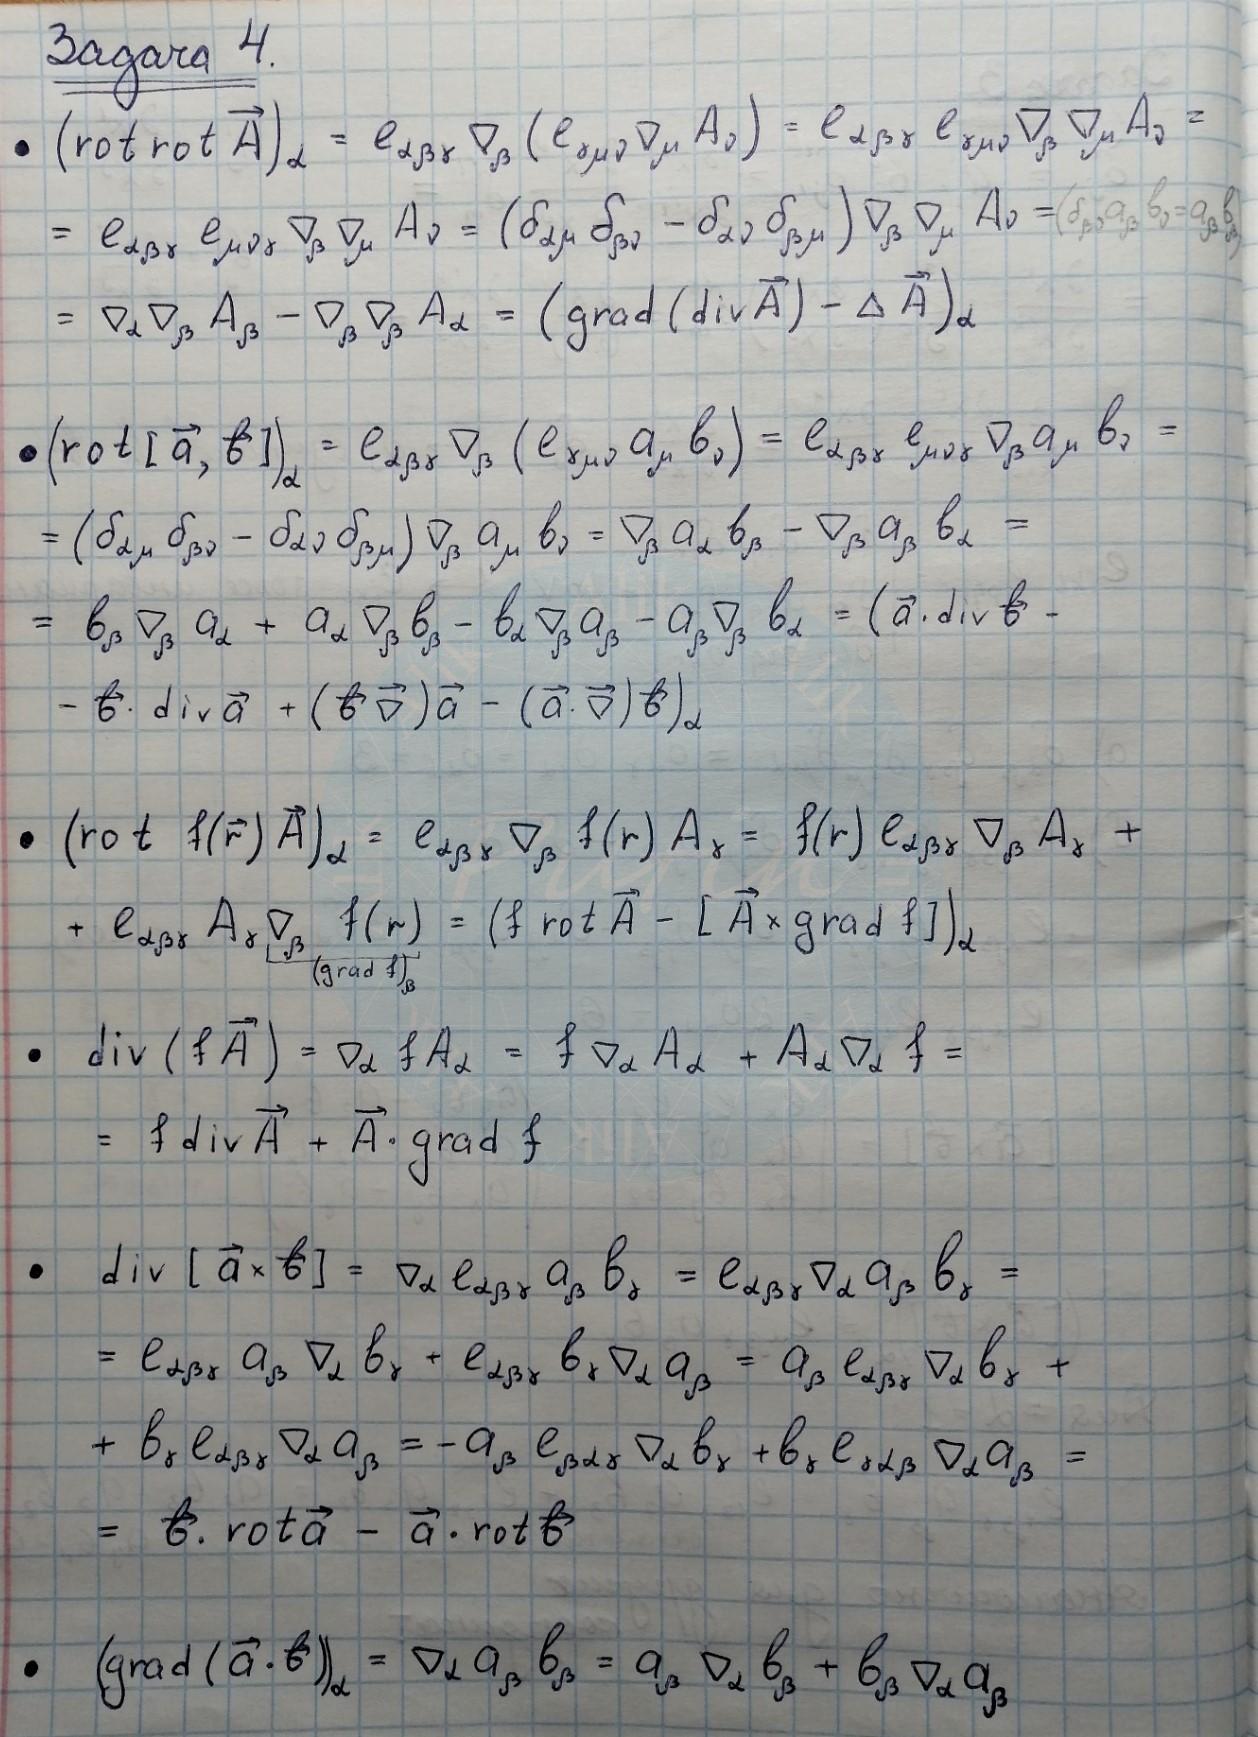 Задача 4.
• (rot rot A⃗)_α = e_αβγ ∇_β (e_γμν ∇_μ A_ν) = e_αβγ e_γμν ∇_β ∇_μ A_ν =
= e_αβγ e_μνγ ∇_β ∇_μ A_ν = (δ_αμ δ_βν − δ_αν δ_βμ) ∇_β ∇_μ A_ν = (δ_βν a_β b_ν = a_β b_β)
= ∇_α ∇_β A_β − ∇_β ∇_β A_α = (grad (div A⃗) − Δ A⃗)_α
• (rot [a⃗, b⃗])_α = e_αβγ ∇_β (e_γμν a_μ b_ν) = e_αβγ e_μνγ ∇_β a_μ b_ν =
= (δ_αμ δ_βν − δ_αν δ_βμ) ∇_β a_μ b_ν = ∇_β a_α b_β − ∇_β a_β b_α =
= b_β ∇_β a_α + a_α ∇_β b_β − b_α ∇_β a_β − a_β ∇_β b_α = (a⃗ · div b⃗ −
− b⃗ · div a⃗ + (b⃗ ∇⃗) a⃗ − (a⃗ · ∇⃗) b⃗)_α
• (rot f(r⃗) A⃗)_α = e_αβγ ∇_β f(r) A_γ = f(r) e_αβγ ∇_β A_γ +
+ e_αβγ A_γ ∇_β f(r) = (f rot A⃗ − [A⃗ × grad f])_α
(grad f)_β
• div (f A⃗) = ∇_α f A_α = f ∇_α A_α + A_α ∇_α f =
= f div A⃗ + A⃗ · grad f
• div [a⃗ × b⃗] = ∇_α e_αβγ a_β b_γ = e_αβγ ∇_α a_β b_γ =
= e_αβγ a_β ∇_α b_γ + e_αβγ b_γ ∇_α a_β = a_β e_αβγ ∇_α b_γ +
+ b_γ e_αβγ ∇_α a_β = − a_β e_βαγ ∇_α b_γ + b_γ e_γαβ ∇_α a_β =
= b⃗ · rot a⃗ − a⃗ · rot b⃗
• (grad (a⃗ · b⃗))_α = ∇_α a_β b_β = a_β ∇_α b_β + b_β ∇_α a_β